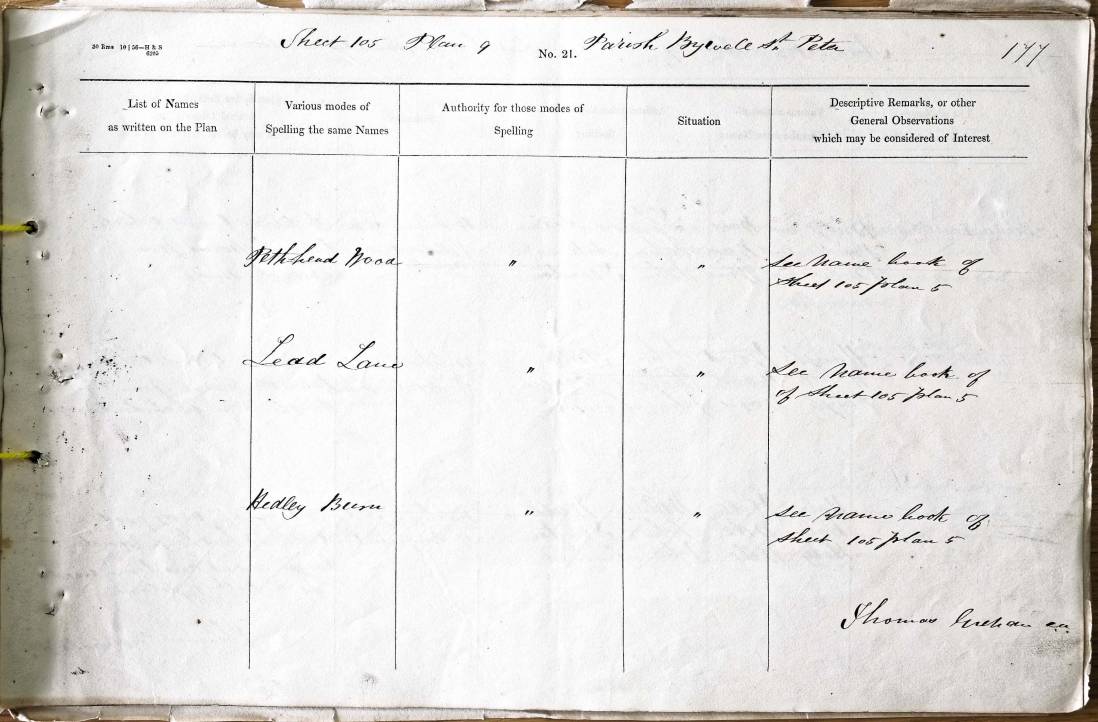 30 Rms 10 | 56—H & S
6205
Sheet 105 Plan 9 No. 21. Parish Bywell St. Peter 177
List of Names
as written on the Plan
Various modes of
Spelling the same Names
Authority for those modes of
Spelling
Situation
Descriptive Remarks, or other
General Observations
which may be considered of Interest
Pethhead Wood " " see Name book of
Sheet 105 plan 5
Lead Lane " " see Name book of
of Sheet 105 plan 5
Hedley Burn " " see name book of
Sheet 105 plan 5
Thomas